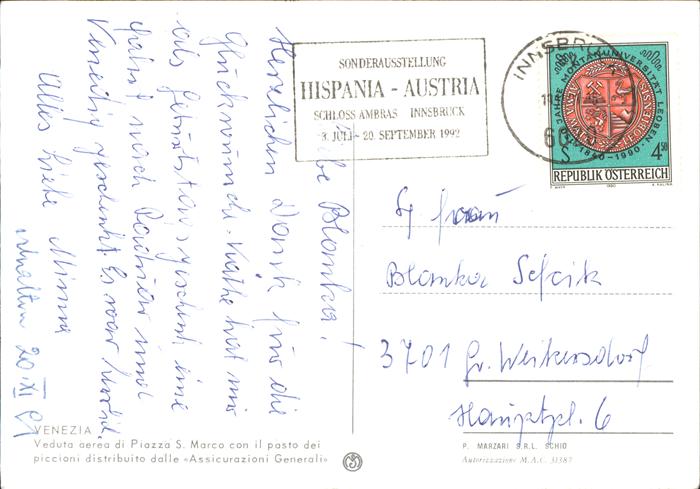 SONDERAUSSTELLUNG
HISPANIA - AUSTRIA
SCHLOSS AMBRAS INNSBRUCK
3. JULI - 20. SEPTEMBER 1992
INNSBRUCK
150 JAHRE MONTANUNIVERSITÄT LEOBEN
1840-1990
S 4 50
REPUBLIK ÖSTERREICH
1990
Liebe Blanka!
Herzlichen Dank für die
Glückwünsche. Käthe hat mir
als Geburtstagsgeschenk eine
Fahrt nach Padua und
Venedig geschenkt. Es war
Alles Liebe Minna
erhalten 20 XI 91
Frau
Blanka Sefcik
3701 Gr. Weikersdorf
Hauptpl. 6
VENEZIA
Veduta aerea di Piazza S. Marco con il pasto dei
piccioni distribuito dalle «Assicurazioni Generali»
P. MARZARI S.R.L. SCHIO
Autorizzazione M.A.C. 31387